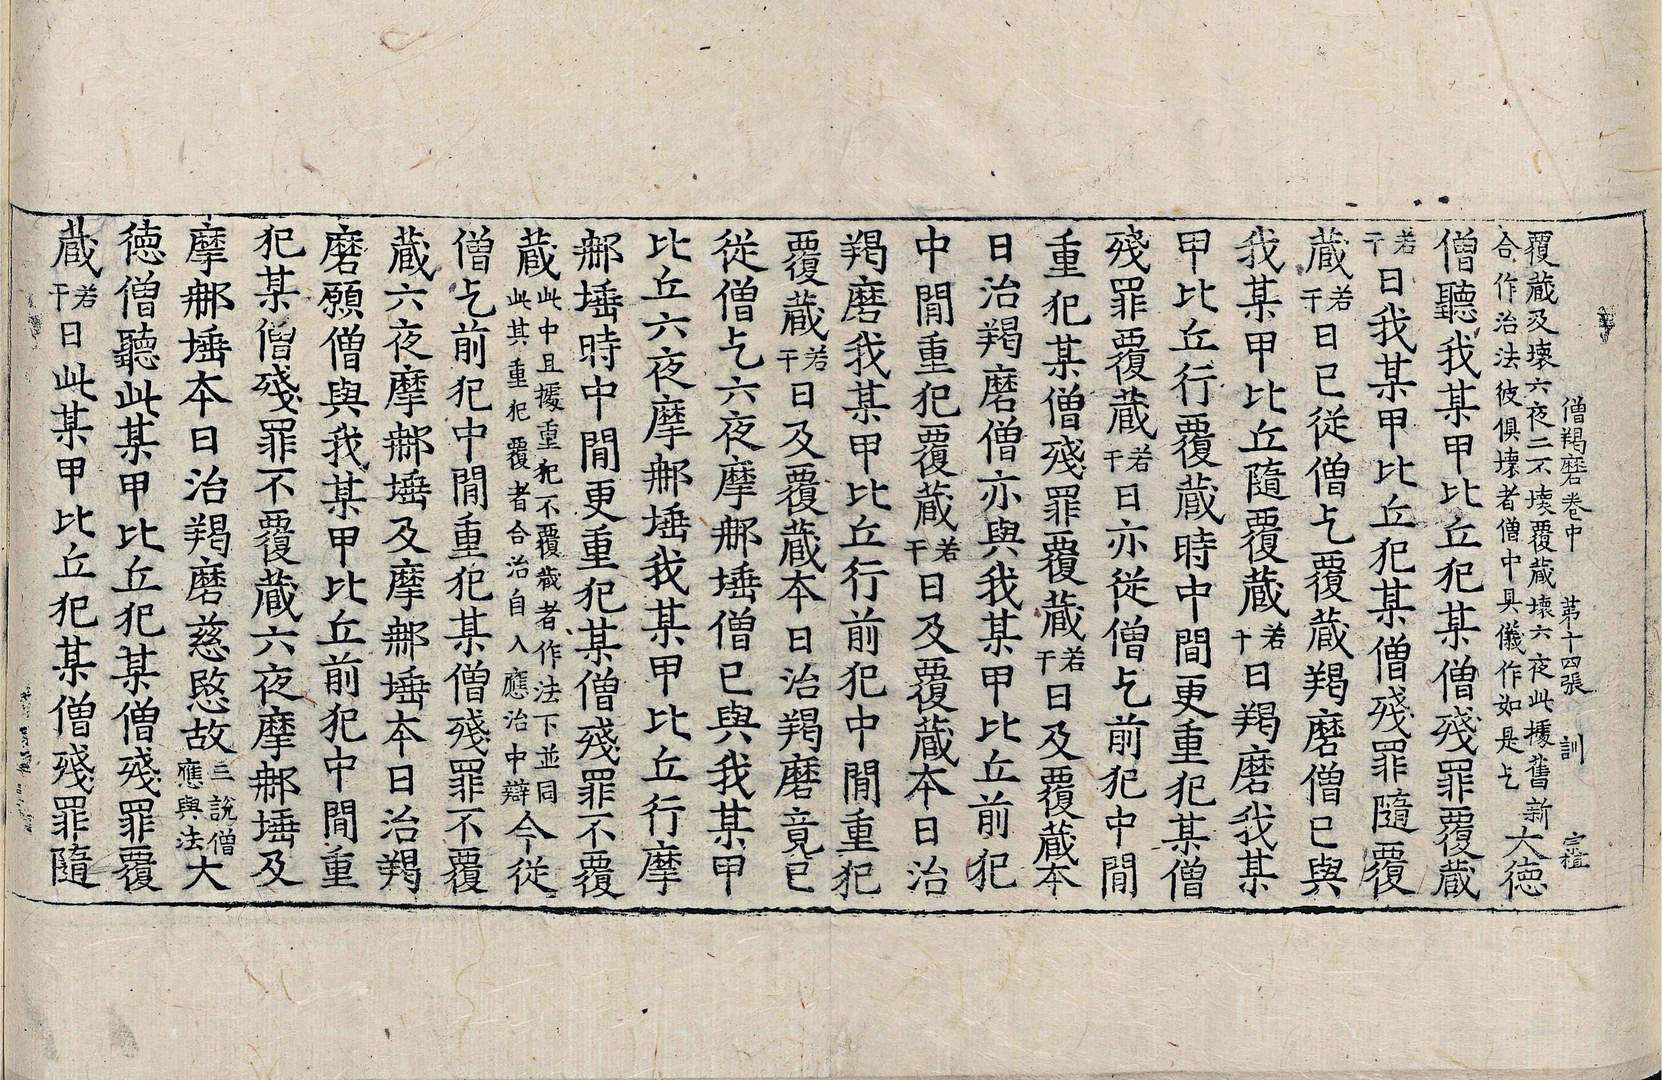 僧羯磨卷中　第十四張　訓　宗禮
覆藏及壞六夜二不壞覆藏壞六夜此據舊新
合作治法彼俱壞者僧中具儀作如是乞大德
僧聽我某甲比丘犯某僧殘罪覆藏
若干日我某甲比丘犯某僧殘罪隨覆
藏若干日已從僧乞覆藏羯磨僧已與
我某甲比丘隨覆藏若干日羯磨我某
甲比丘行覆藏時中間更重犯某僧
殘罪覆藏若干日亦從僧乞前犯中間
重犯某僧殘罪覆藏若干日及覆藏本
日治羯磨僧亦與我某甲比丘前犯
中間重犯覆藏若干日及覆藏本日治
羯磨我某甲比丘行前犯中間重犯
覆藏若干日及覆藏本日治羯磨竟已
從僧乞六夜摩𨚗埵僧已與我某甲
比丘六夜摩𨚗埵我某甲比丘行摩
𨚗埵時中間更重犯某僧殘罪不覆
藏此中且據重犯不覆藏者作法下並同此其重犯覆者合治自入應治中辯今從
僧乞前犯中間重犯某僧殘罪不覆
藏六夜摩𨚗埵及摩𨚗埵本日治羯
磨願僧與我某甲比丘前犯中間重
犯某僧殘罪不覆藏六夜摩𨚗埵及
摩𨚗埵本日治羯磨慈愍故三說僧應與法大
德僧聽此某甲比丘犯某僧殘罪覆
藏若干日此某甲比丘犯某僧殘罪隨